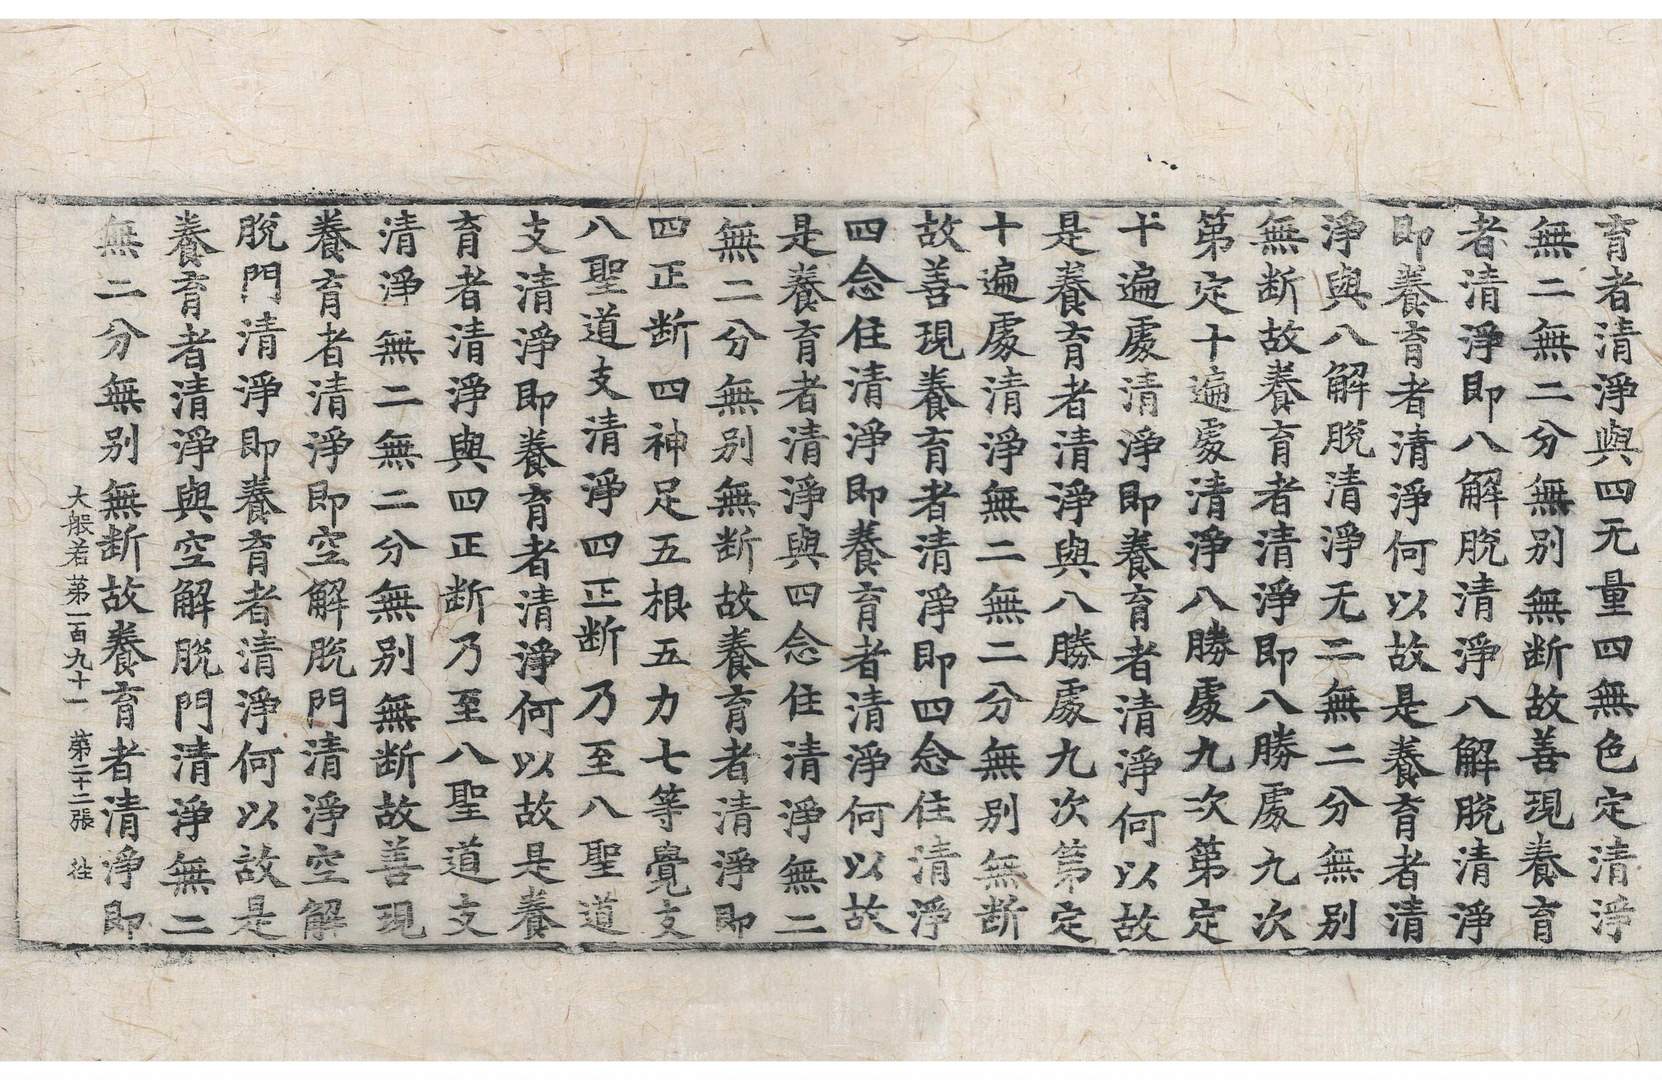 育者清淨與四无量四無色定清淨
無二無二分無別無断故善現養育
者清淨即八解脫清淨八解脫清淨
即養育者清淨何以故是養育者清
淨與八解脫清淨无二無二分無別
無断故養育者清淨即八勝處九次
第定十遍處清淨八勝處九次第定
十遍處清淨即養育者清淨何以故
是養育者清淨與八勝處九次第定
十遍處清淨無二無二分無別無断
故善現養育者清淨即四念住清淨
四念住清淨即養育者清淨何以故
是養育者清淨與四念住清淨無二
無二分無別無断故養育者清淨即
四正断四神足五根五力七等覺支
八聖道支清淨四正断乃至八聖道
支清淨即養育者清淨何以故是養
育者清淨與四正断乃至八聖道支
清淨無二無二分無別無断故善現
養育者清淨即空解脫門清淨空解
脫門清淨即養育者清淨何以故是
養育者清淨與空解脫門清淨無二
無二分無別無断故養育者清淨即
大般若第一百九十一 第二十二張